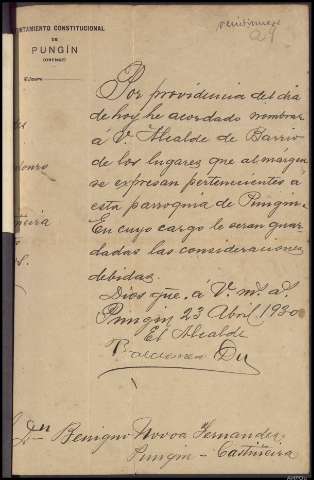 veintinueve
29
AYUNTAMIENTO CONSTITUCIONAL
DE
PUNGÍN
(ORENSE)
Por providencia del dia
de hoy he acordado nombrar
á V. Alcalde de Barrio
de los lugares que al márgen
se expresan pertenecientes a
esta parroquia de Pungin.
En cuyo cargo le seran guar
dadas las consideraciones
debidas.
Dios gũe. á V. m. a.s
Pungin 23 Abril 1930
El Alcalde
Dn Benigno Novoa Fernandez
Pungin - Castiñeira